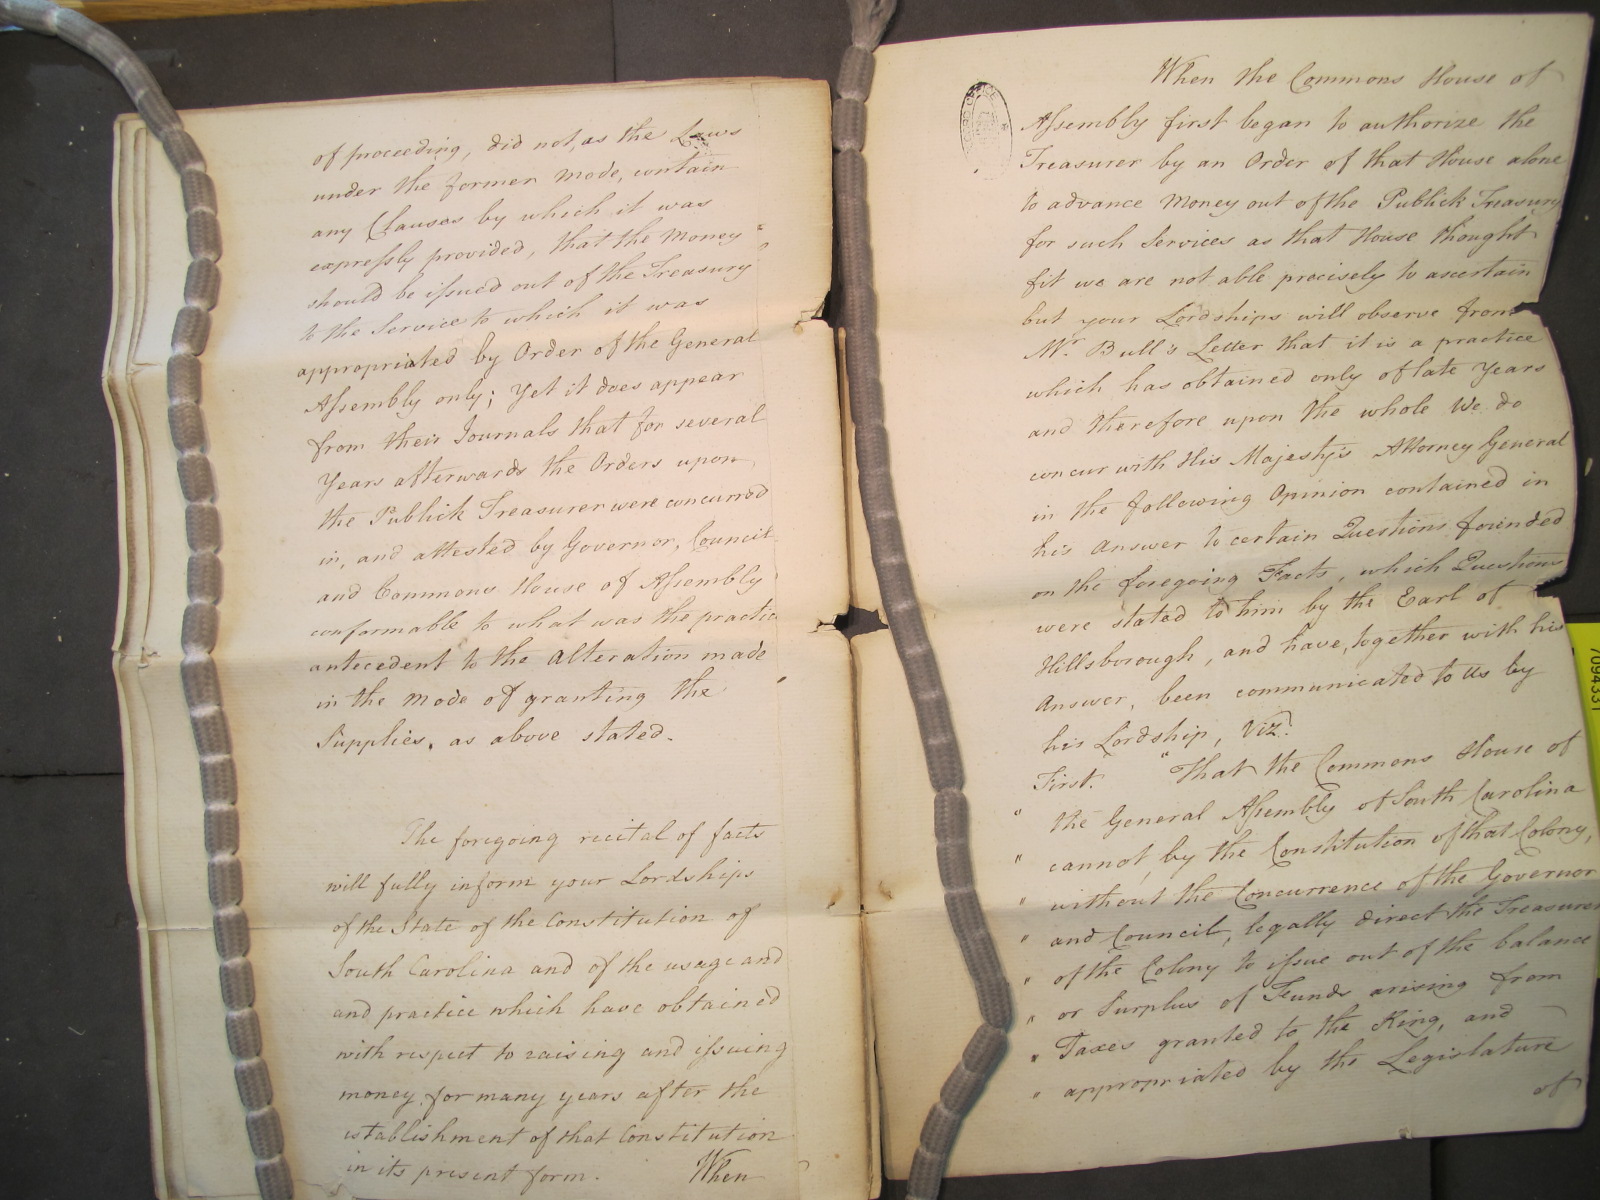 of proceeding, did not, as the Laws
under the former Mode, contain
any Clauses by which it was
expressly provided, that the Money
should be issued out of the Treasury
to the Service to which it was
appropriated by Order of the General
Assembly only; Yet it does appear
from their Journals that for several
Years afterwards the Orders upon
the Publick Treasurer were concurred
in, and attested by Governor, Council
and Commons House of Assembly
conformable to what was the practice
antecedent to the Alteration made
in the Mode of granting the
Supplies, as above stated.
The foregoing recital of facts
will fully inform your Lordships
of the State of the Constitution of
South Carolina and of the usage and
and practice which have obtained
with respect to raising and issuing
money, for many years after the
establishment of that Constitution
in its present form.
When
When the Commons House of
Assembly first began to authorize the
Treasurer by an Order of that House alone
to advance Money out of the Publick Treasury
for such Services as that House thought
fit we are not able precisely to ascertain
but your Lordships will observe from
Mr. Bull's Letter that it is a practice
which has obtained only of late Years
and therefore upon the whole We do
concur with His Majesty's Attorney General
in the following Opinion contained in
his Answer to certain Questions founded
on the foregoing Facts, which Questions
were stated to him by the Earl of
Hillsborough, and have, together with his
Answer, been communicated to Us by
his Lordship, Vizt.
First. "That the Commons House of
" the General Assembly of South Carolina
" cannot, by the Constitution of that Colony,
" without the Concurrence of the Governor
" and Council, legally direct the Treasurer
" of the Colony to issue out of the balance
" or Surplus of Funds arising from
" Taxes granted to the King, and
" appropriated by the Legislature
of
7094331